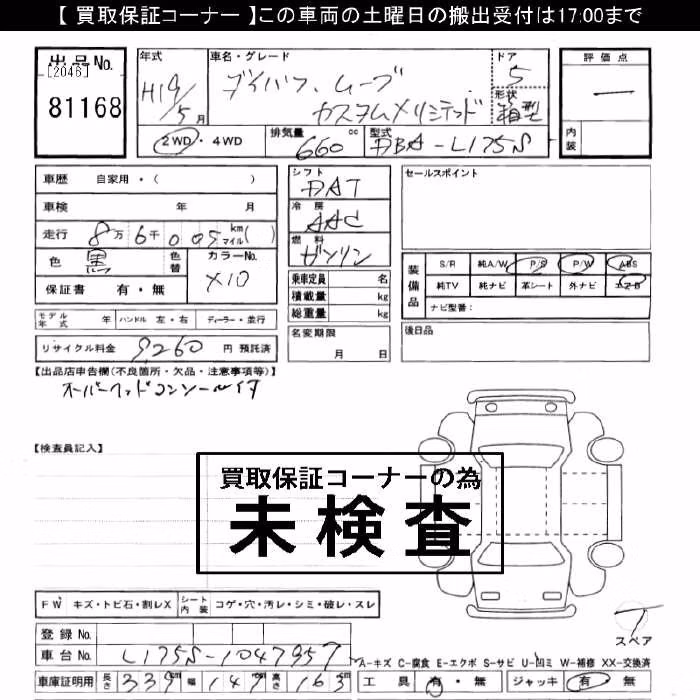 【 買取保証コーナー 】この車両の土曜日の搬出受付は17:00まで
出品No. [2046] 81168
年式 H19/5月
車名・グレード ダイハツ ムーブ カスタムメリミテッド
ドア 5
形状 箱型
評価点 一
内装
2WD・4WD
排気量 660cc
型式 DBA-L175S
車歴 自家用・( )
車検 年 月
走行 8万6千005 km マイル( )
色 黒 色替 カラーNo. X10
保証書 有・無
シフト DAT
冷房 AAC
燃料 ガソリン
乗車定員 名
積載量 kg
総重量 kg
セールスポイント
装備品 S/R 純A/W P/S P/W ABS
純TV 純ナビ 革シート 外ナビ エアB
ナビ型番:
モデル年式 年 ハンドル 左・右 ディーラー・並行
名変期限 月 日
後日品
リサイクル料金 9260 円 預託済
【出品店申告欄(不良箇所・欠品・注意事項等)】
オーバーヘッドコンソールイタ
【検査員記入】
買取保証コーナーの為
未検査
FW キズ・トビ石・割レX シート内装 コゲ・穴・汚レ・シミ・破レ・スレ
T
スペア
登録No.
車台No. L175S-1047957
A-キズ C-腐食 E-エクボ S-サビ U-凹ミ W-補修 XX-交換済
車庫証明用 長さ 339cm 幅 147cm 高さ 163cm
工具 有・無 ジャッキ 有・無